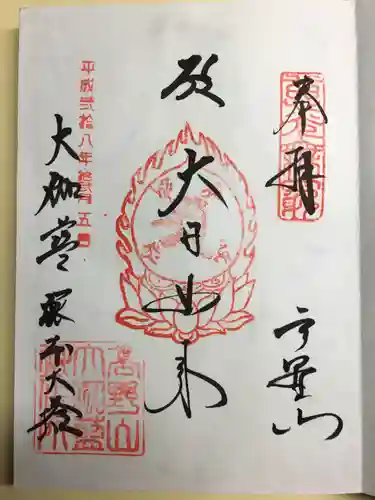 奉拝
高野山
大日如来
殿
平成弐拾八年拾弐月五日
大伽藍 根本大塔
高野山
大伽藍